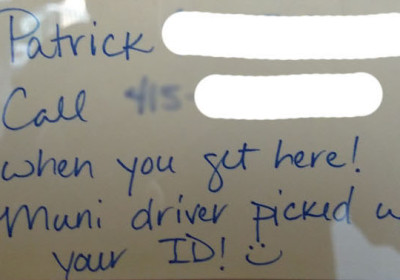 Patrick
Call 415-
when you get here!
Muni driver picked
your ID! :)